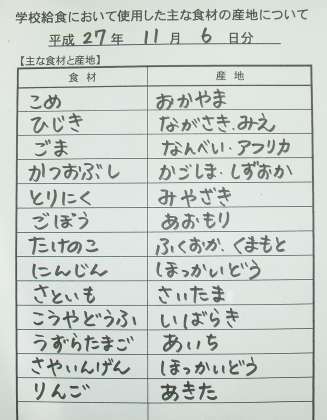 学校給食において使用した主な食材の産地について
平成 27 年 11 月 6 日分
【主な食材と産地】
食材 産地
こめ おかやま
ひじき ながさき、みえ
ごま なんべい・アフリカ
かつおぶし かごしま・しずおか
とりにく みやざき
ごぼう あおもり
たけのこ ふくおか、くまもと
にんじん ほっかいどう
さといも さいたま
こうやどうふ いばらき
うずらたまご あいち
さやいんげん ほっかいどう
りんご あきた